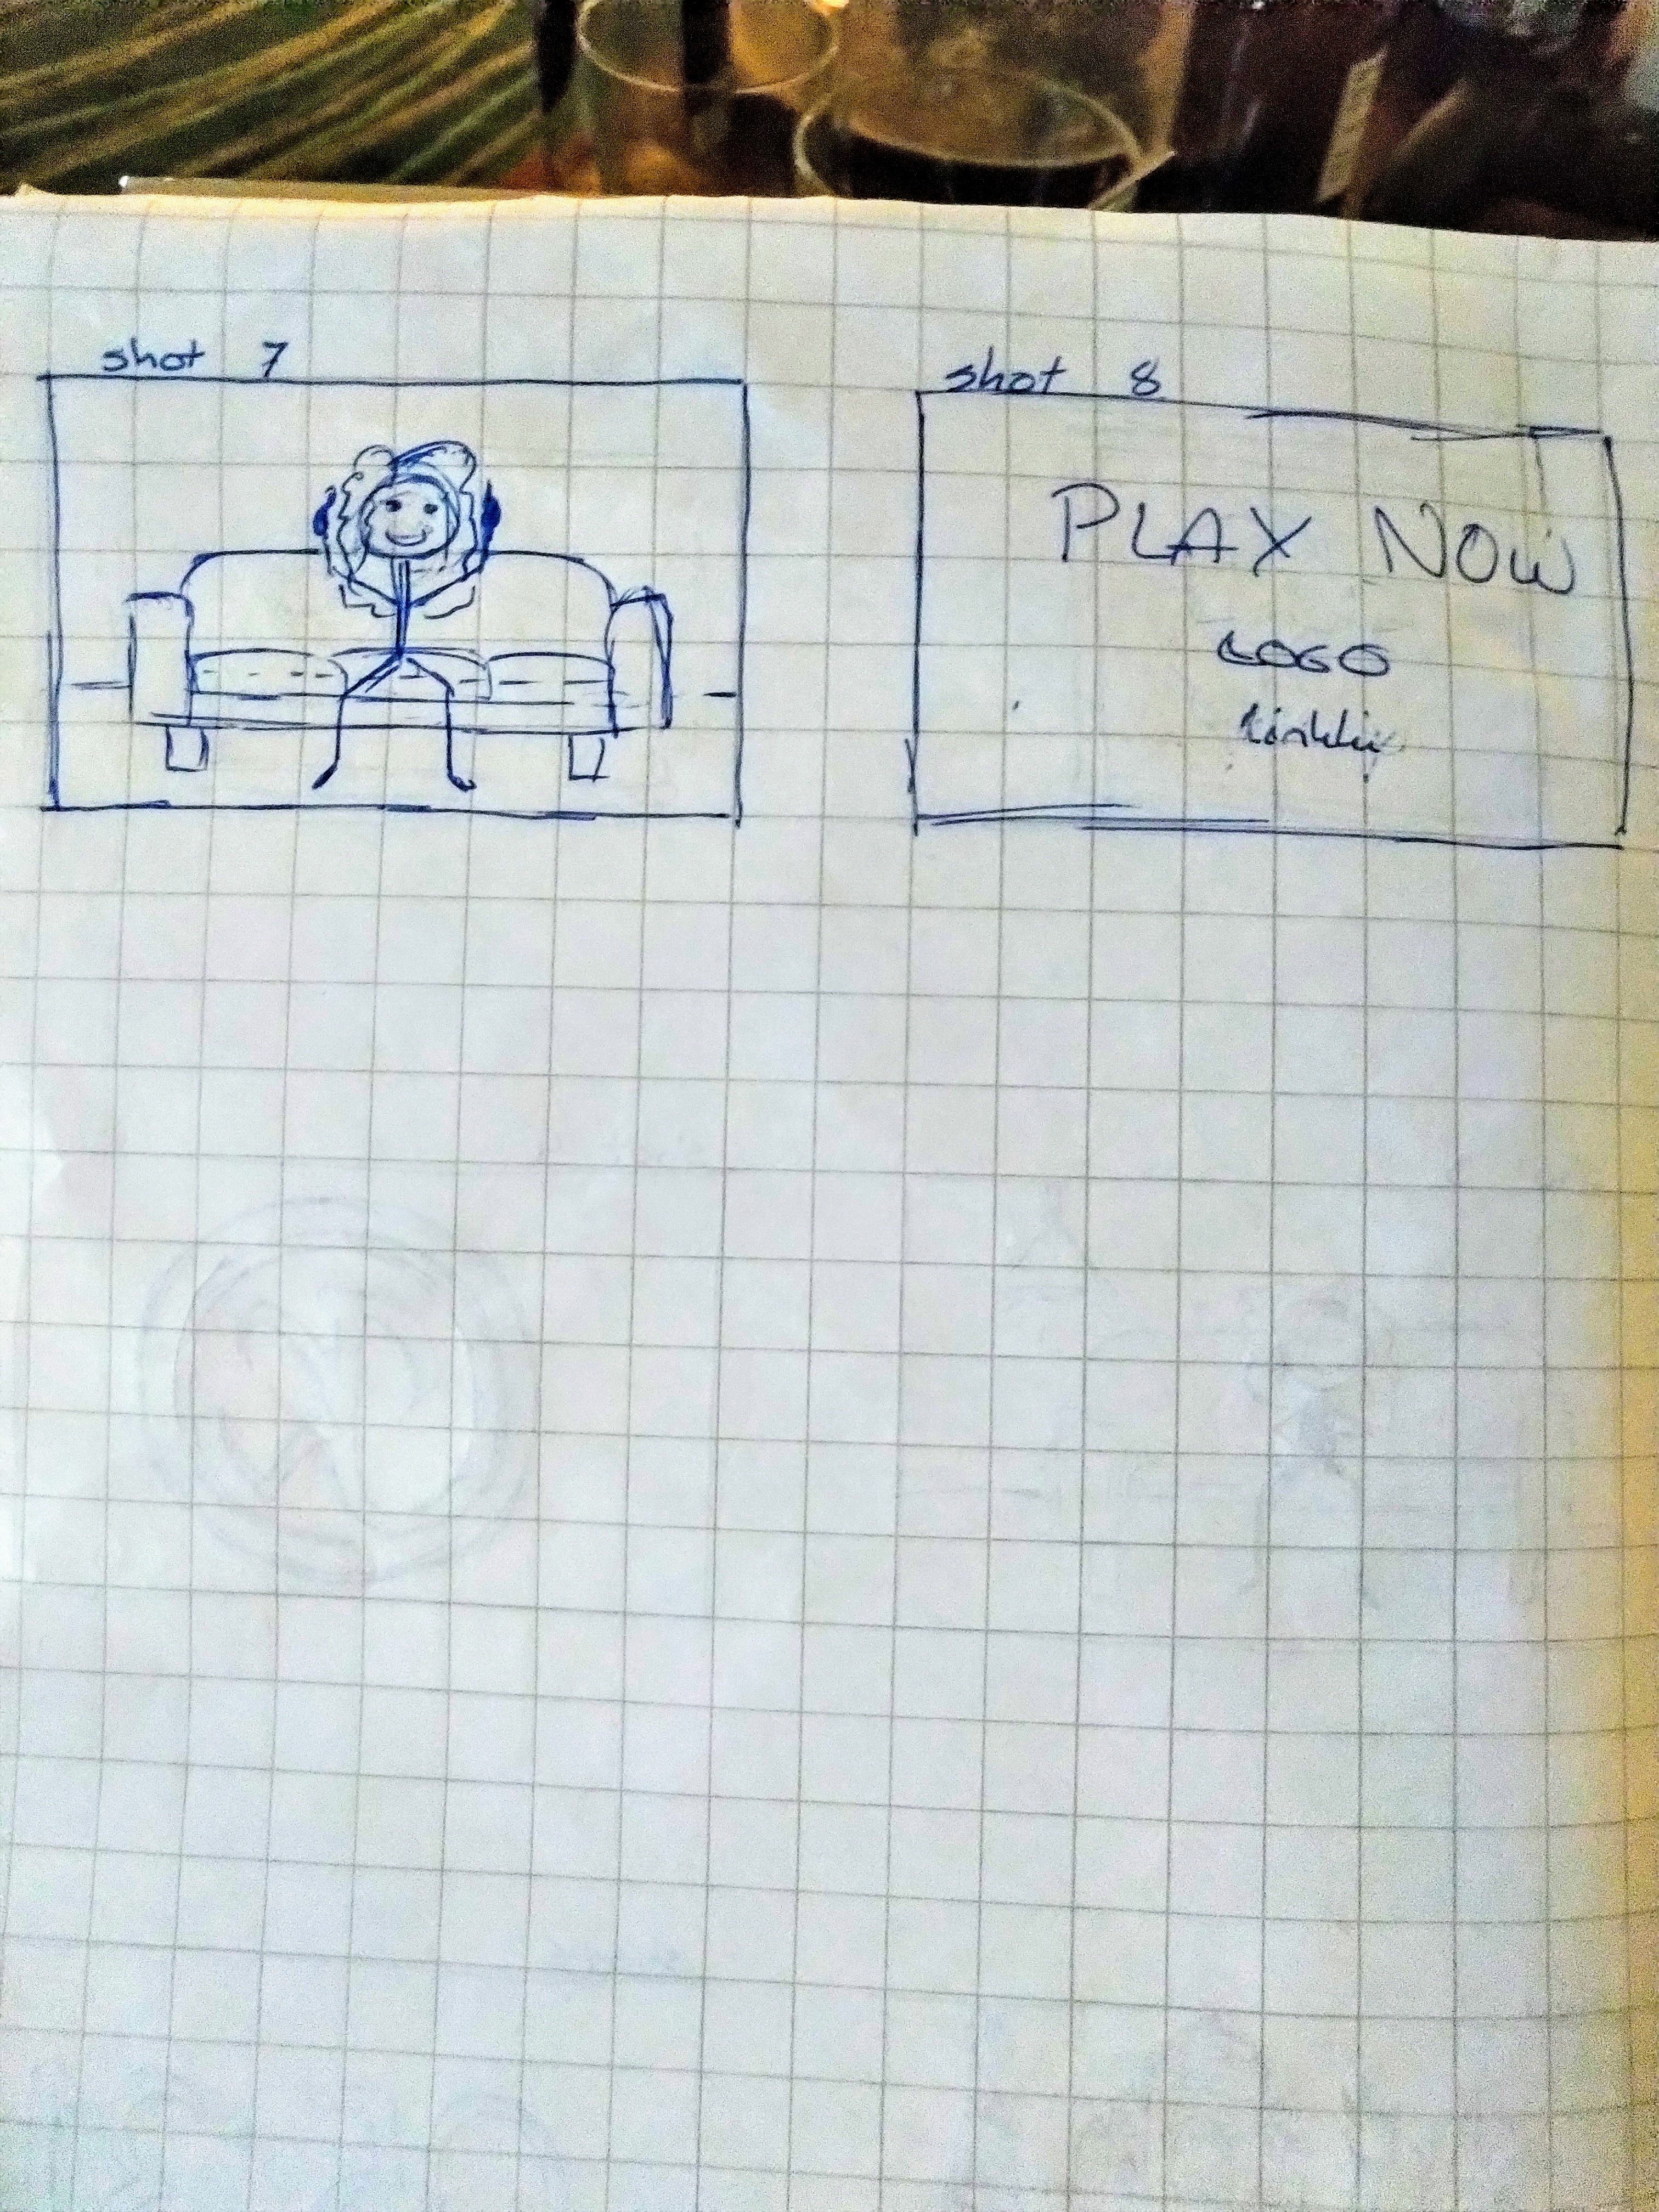 shot 7
shot 8
PLAY NOW
LOGO